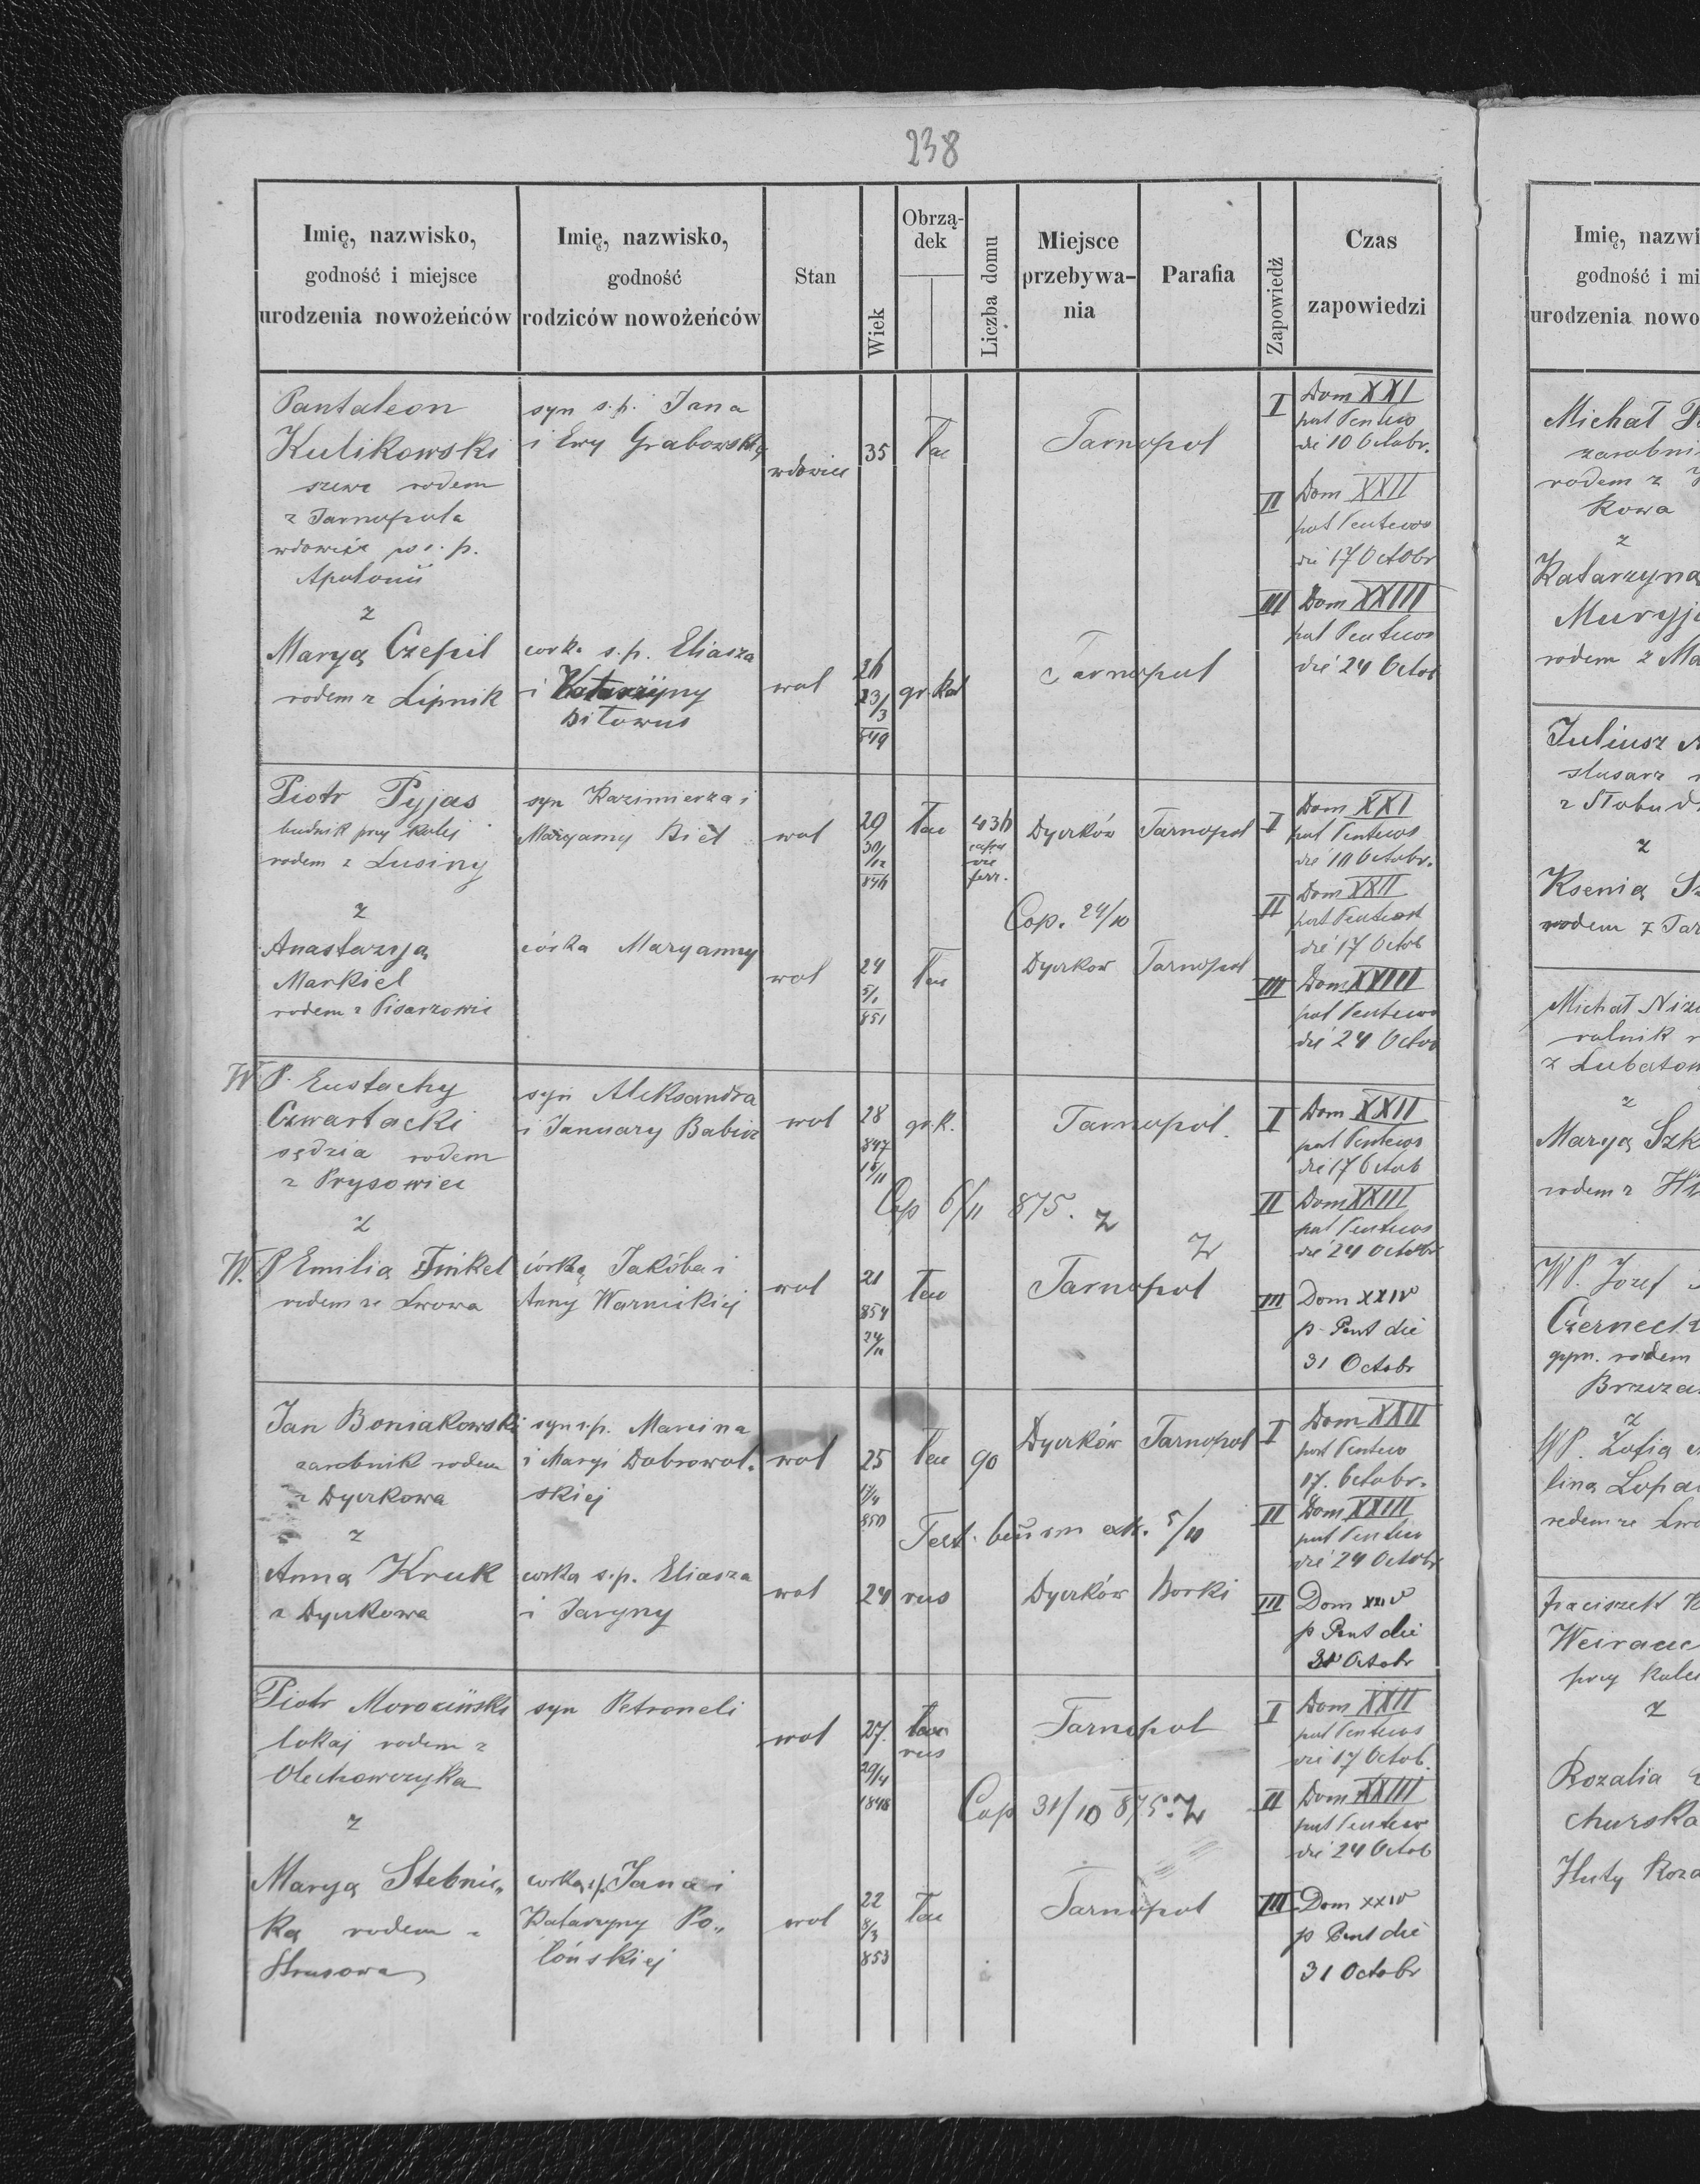 238
Imię, nazwisko,
godność i miejsce
urodzenia nowożeńców
Imię, nazwisko,
godność
rodziców nowożeńców
Stan
Wiek
Obrzą-
dek
Liczba domu
Miejsce
przebywa-
nia
Parafia
Zapowiedź
Czas
zapowiedzi
Pantaleon
Kulikowski
szewc rodem
z Tarnopola
wdowiec po s. p.
Apolonii
z
Marya Czepil
rodem z Lipnik
syn s.p. Jana
i Ewy Grabowskiej
wdowiec
35
łac
Tarnopol
corka s.p. Eliasza
i Katarzyny
wol
26
23/3
849
gr. kat
Tarnopol
I Dom XXI
post Pentecos
die 10 Octobr.
II Dom XXII
post Pentecos
die 17 Octobr
III Dom XXIII
post Pentecos
die 24 Octob
Piotr Pyjas
budnik przy kolej
rodem z Lusiny
z
Anastazya
Markiel
rodem z Pisarzowic
syn Kazimierza i
Maryanny Biel
wol
29
30/12
846
łac
436
ferr.
Dyczków Tarnopol
Cop. 24/10
córka Maryanny
wol
24
5/1
851
łac
Dyczkow Tarnopol
I Dom XXI
post Pentecos
die 10 Octobr.
II Dom XXII
post Pentecost
die 17 Octob
III Dom XXIII
post Pentecos
die 24 Octob
W P. Eustachy
Czwartacki
sędzia rodem
z Prysowiec
z
W. P Emilia Finkel
rodem ze Lwowa
syn Aleksandra
i January Babicz
wol
28
847
15/11
gr. k.
Tarnopol.
Cop 6/11 875. z
z
córka Jakóba i
Anny Warnickiej
wol
21
854
24/11
łac
Tarnopol
I Dom XXII
post Pentecos
die 17 Octob
II Dom XXIII
post Pentecos
die 24 Octobr
III Dom XXIV
p. Pent die
31 Octobr
Jan Boniakowski
zarobnik rodem
z Dyczkowa
z
Anna Kruk
z Dyczkowa
syn s.p. Marcina
i Maryi Dobrowol-
skiej
wol
25
17/4
850
łac
90
Dyczków Tarnopol
Test. ext. 5/11
corka s.p. Eliasza
i Jaryny
wol
24
rus
Dyczków Borki
I Dom XXII
post Pentecos
17. Octobr.
II Dom XXIII
post Pentecos
die 24 Octobr
III Dom XXIV
p Pent die
31 Octobr
Piotr Morociński
lokaj rodem z
Olechowczyka
z
Marya Stebnic„
ka rodem z
Strusowa
syn Petroneli
wol
27.
29/4
1848
rus
Tarnopol
Cop 31/10 875. z
corka s.p. Jana i
Katarzyny Po„
lońskiej
wol
22
8/3
853
łac
Tarnopol
I Dom XXII
post Pentecos
die 17 Octob.
II Dom XXIII
post Pentecos
die 24 Octob
III Dom XXIV
p Pent die
31 Octobr
Imię, nazwi
godność i mi
urodzenia nowo
Michał
zarobni
rodem z
kowa
z
Katarzyna
rodem z Ma
Juliusz
slusarz
z
Ksenia
rodem z Tar
Michał
rolnik
z
Marya Szk
rodem z
WP. Jozef
Czerneck
rodem
z
WP. Zofia
lina Lopa
rodem ze Lwo
przy kolei
z
Rozalia
churska
Huty